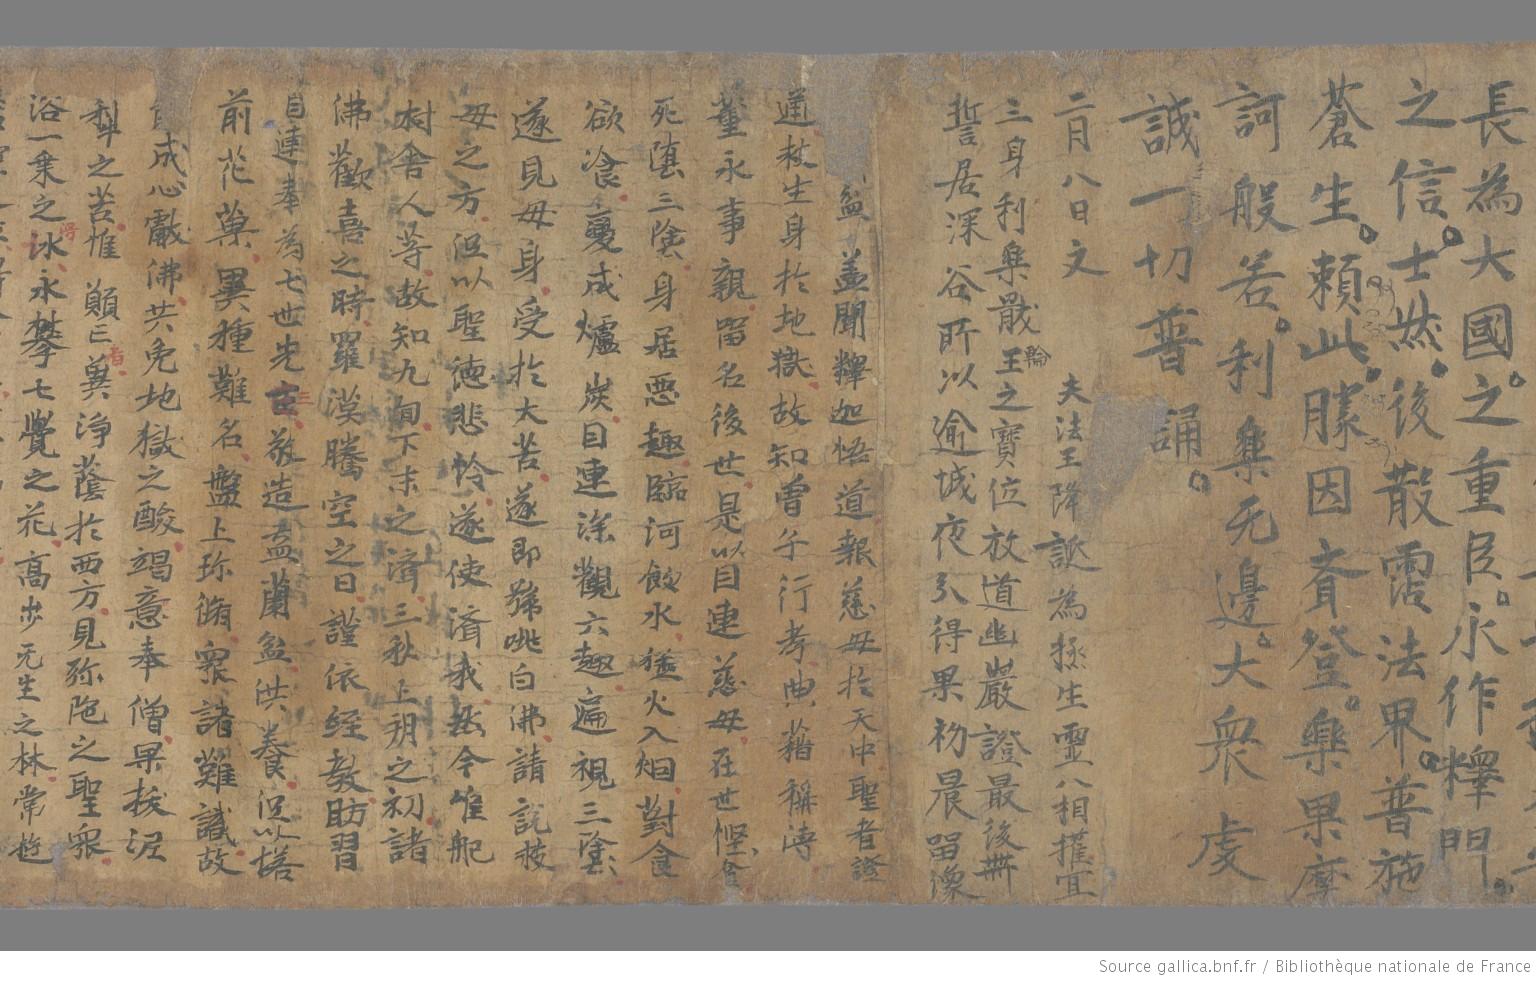 長為大國之重臣永作釋門
之信士然後散霑法界普施
蒼生賴此勝因齊登樂果摩
訶般若利樂无邊大衆虔
誠一切普誦
二月八日文
夫法王降誕為拯生靈八相權宜
三身利樂戢輪王之寶位放道幽巖證最後無
誓居深谷所以逾城夜引得果初晨留像
盆蓋聞釋迦悟道報慈母於天中聖者證
通救生身於地獄故知曾子行考典藉稱
董永事親留名後世是以目連慈母在世慳
死墮三陰身居惡趣臨河飲水猛火入烟對食
欲飡變成爐炭目連深觀六趣遍視三塗
遂見母身受於大苦遂即號咷白佛請說救
母之方但以聖德悲怜遂使濟我然今唯
村舍人等故知九旬下末之濟三秋上朔之初諸
佛歡喜之時羅漢騰空之日謹依經教昉習
目連奉為七世先亡三敬造盂蘭盆洪養但以塔
前花菓異種難名盤上珍餚衆諸難識故
成心獻佛共免地獄之酸竭意奉僧果拔泥
犁之苦惟願亡者異淨蔭於西方見弥陁之聖衆
浴一乘之冰得永攀七覺之花高步无生之林常遊